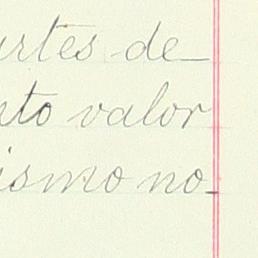 artes de
nto valor
ismo no-